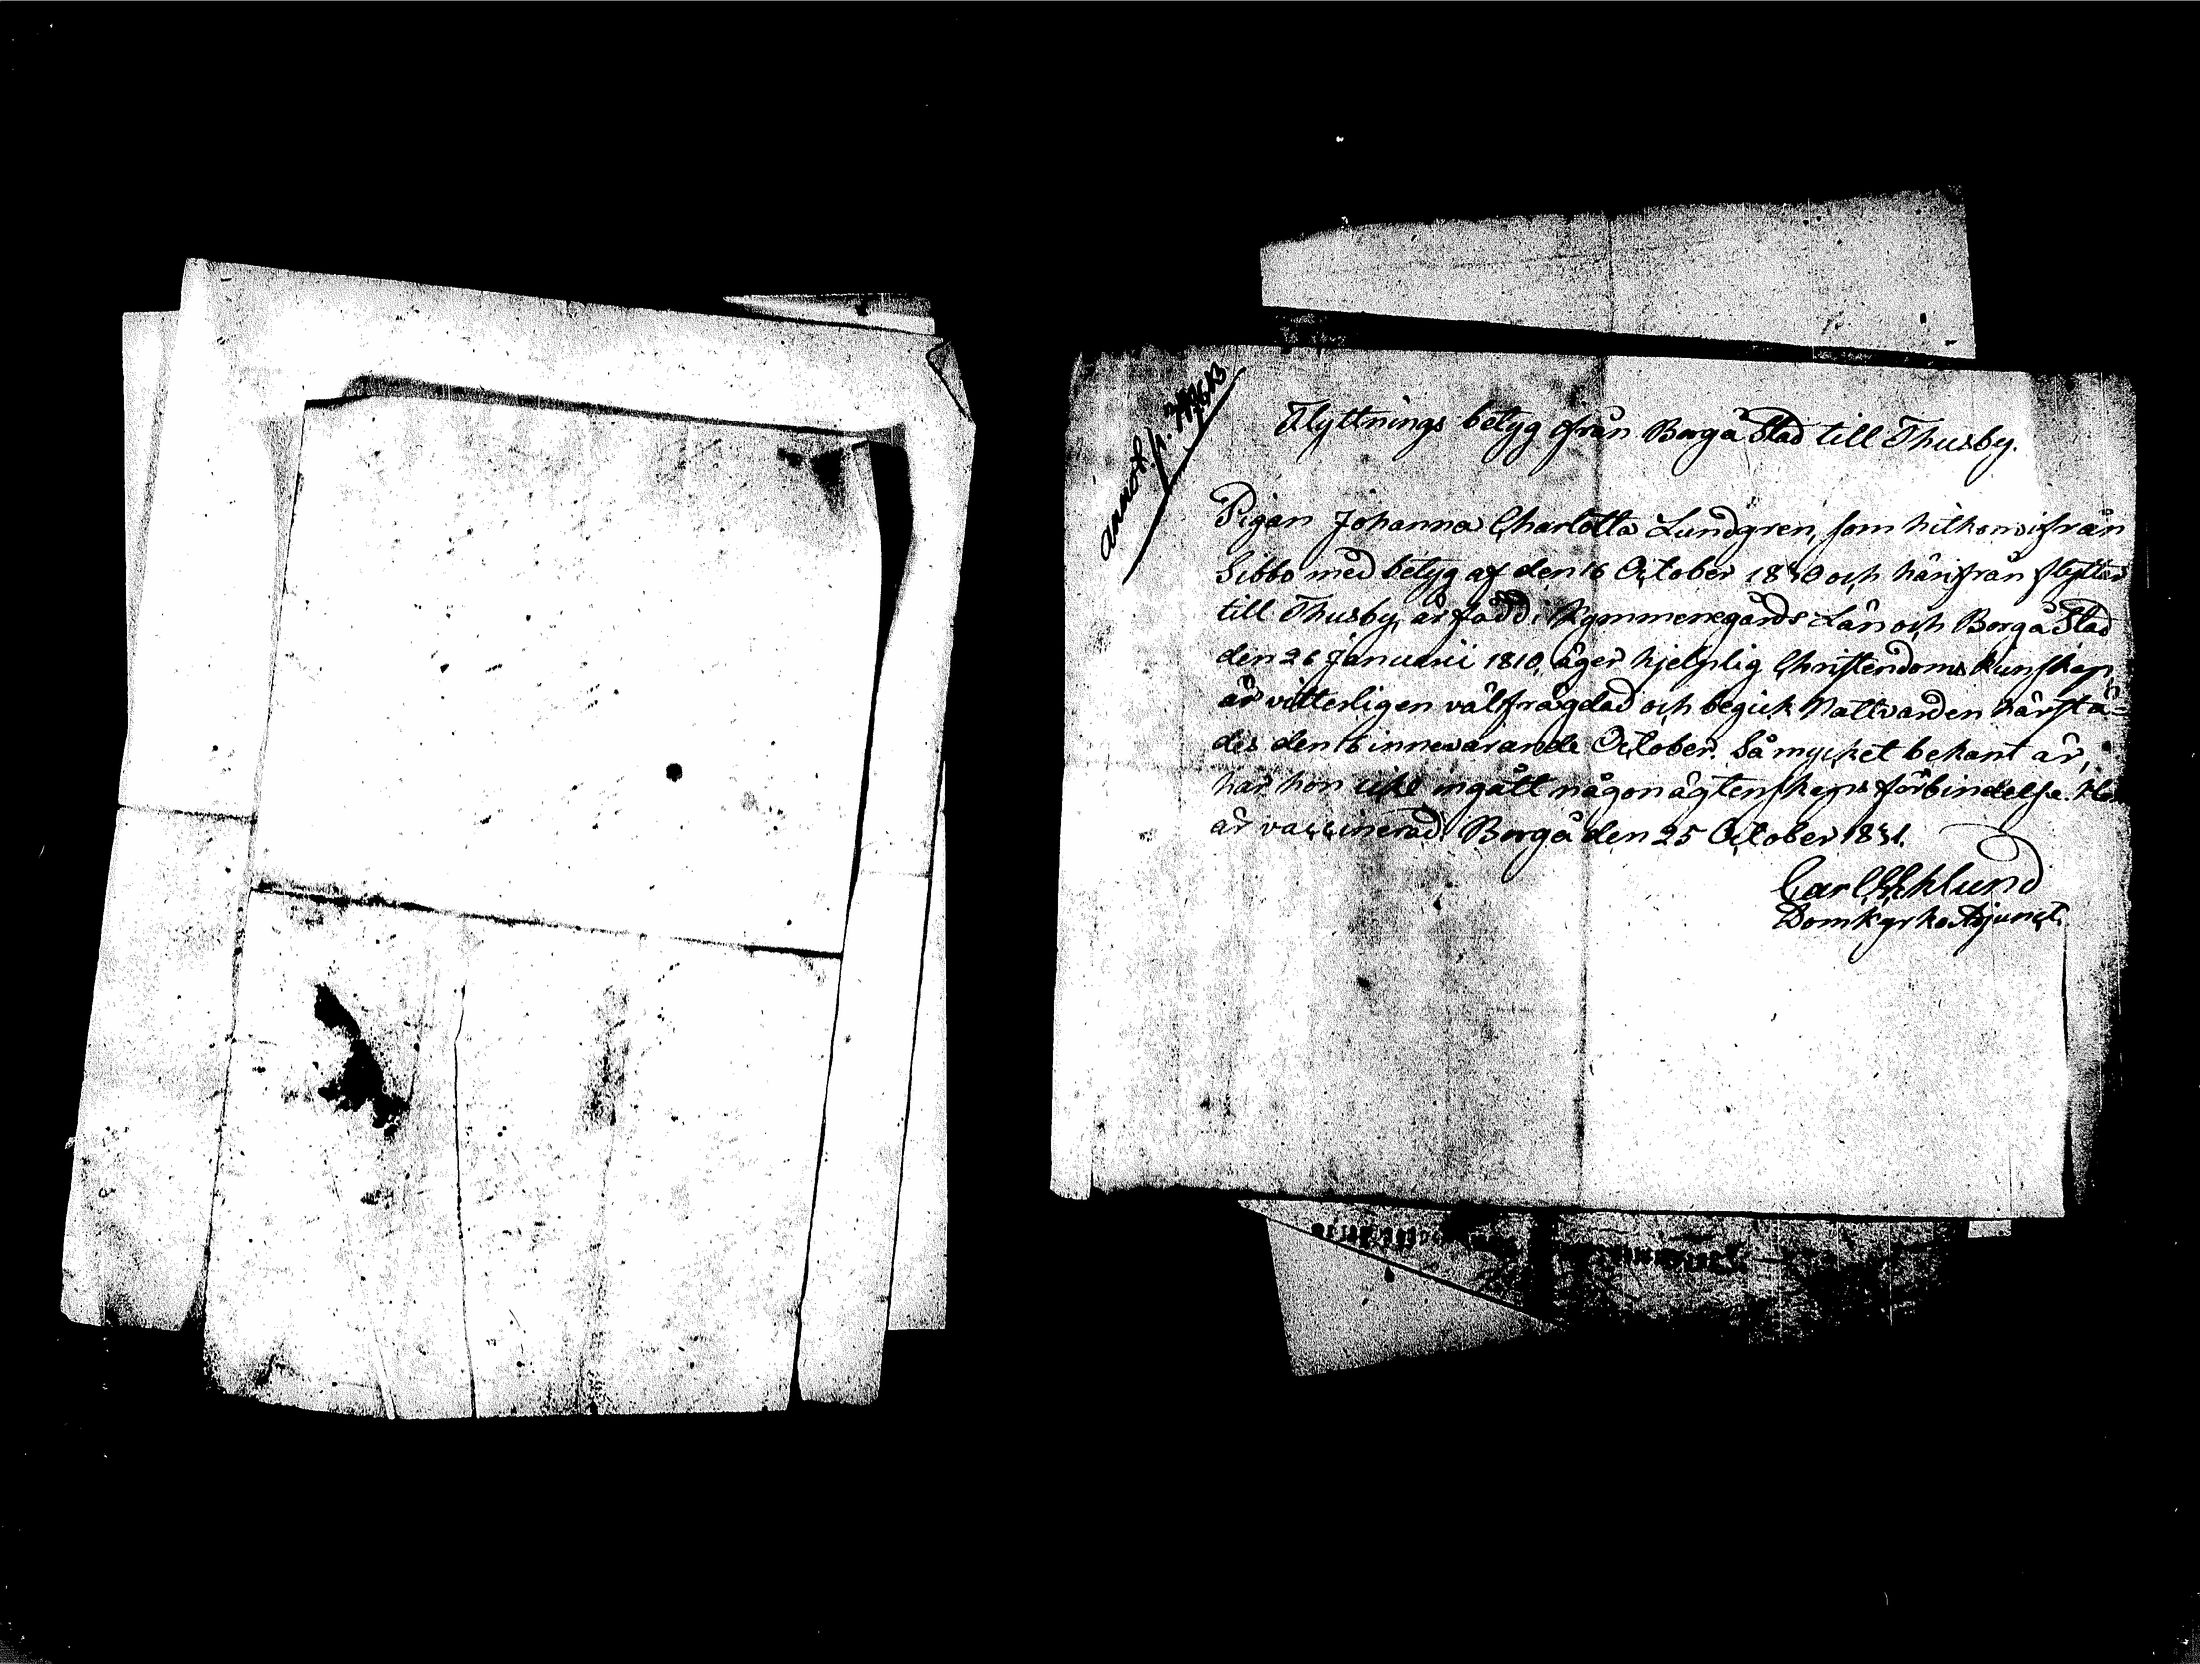 annot. p.
Flyttnings betyg ifrån Borgå Stad till Thusby.
Pigan Johanna Charlotta Lundgren, som hitkom ifrån
Sibbo med betyg af den 16 October 1830 och härifrån flyttar
till Thusby, är född i Kymmenegårds Län och Borgå Stad
den 26 Januarii 1810, äger hjelplig Christendoms kunskap,
är vitterligen välfrägdad och begick Nattvarden härstä-
des den 16 innevarande October. Så mycket bekant är,
har hon icke ingått någon ägtenskaps förbindelse. Hon
är vaccinerad. Borgå den 25 October 1831.
Carl Eklund
Domkyrko Adjunct.